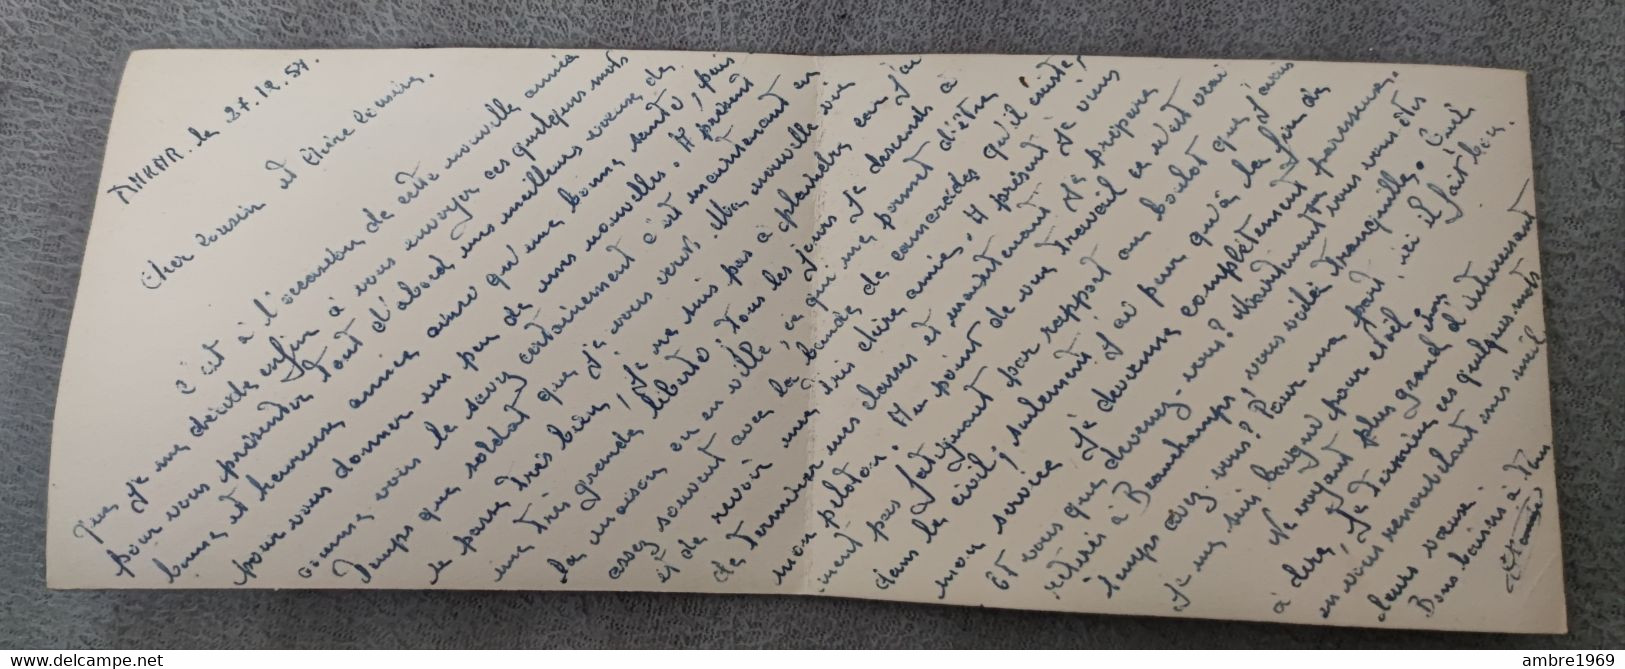 le 27.12.54.
Cher Cousin et chère Cousine.
C'est à l'occasion de cette nouvelle année
que je me décide enfin à vous envoyer ces quelques mots
pour vous présenter tout d'abord mes meilleurs vœux de
bonne et heureuse année ainsi qu'une bonne santé, puis
pour vous donner un peu de mes nouvelles. A présent
comme vous le savez certainement c'est maintenant en
temps que soldat que je vous écris. Ma nouvelle vie
se passe très bien, je ne suis pas à plaindre car j'ai
une très grande liberté. Tous les jours je descends à
la maison en ville, ce qui me permet d'être
assez souvent avec la bande de camarades qu'il existe,
et de revoir une très chère amie. A présent je viens
de terminer mes classes et maintenant je prépare
mon peloton. Au point de vue travail ce n'est vrai
ment pas fatiguant par rapport au boulot que j'avais
dans le civil; seulement j'ai peur qu'à la fin de
mon service je devienne complètement paresseux.
Et vous que devenez-vous? Maintenant que vous êtes
retirés à Beauchamps, vous voilà tranquilles. Quel
temps avez-vous? Pour ma part, ici il fait bon.
Je me suis baigné pour Noël
Ne voyant plus grand chose d'intéressant
à dire, je termine ces quelques mots
en vous renouvelant mes meil
leurs vœux.
Bons baisers à tous